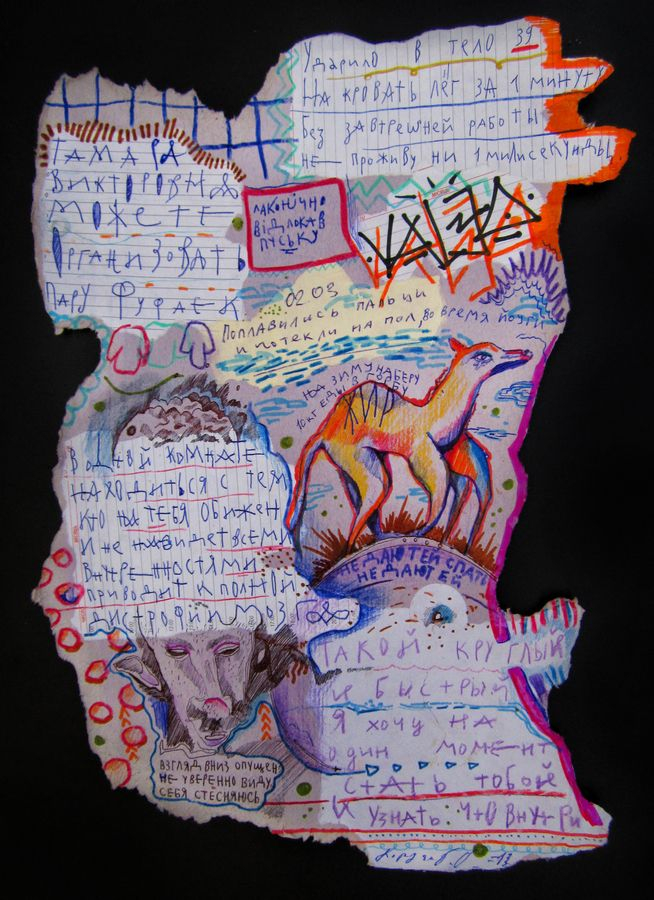 Ударило в тело 39
На кровать лёг за 1 минуту
Без завтрешней работы
не проживу ни 1 милисекунды
Тамара
Викторовна
можете
организовать
пару фуфаек
лаконічно
відлокав
пуську
02.03
Поплавились пальци
и потекли на пол, во время йоги
на зиму наберу
10 кг еды в горбу
ЖИР
в одной комнате
находиться с тем
кто на тебя обижен
и не навидет всеми
внутренностями
приводит к полной
дистрофии мозга
не дают ей спать
не дают ей
Такой круглый
и быстрый
я хочу на
один момент
стать тобой
и узнать что внутри
взгляд вниз опущен
не уверенно виду
себя стесняюсь